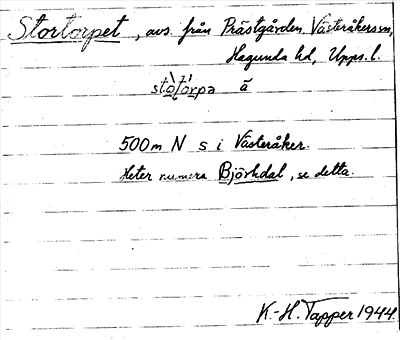 Stortorpet, avs. från Prästgården, Västeråkers sn,
Hagunda hd, Upps. l.
stòtórpa ã
500 m N s i Västeråker.
Heter numera Björkdal, se detta.
K.-H. Tapper 1944.